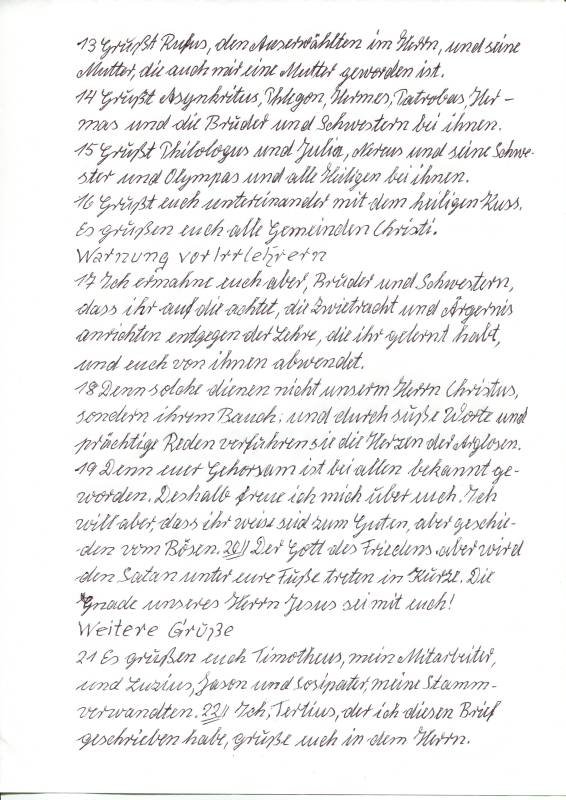 13 Grüßt Rufus, den Auserwählten im Herrn, und seine
Mutter, die auch mir eine Mutter geworden ist.
14 Grüßt Asynkritus, Phlegon, Hermes, Patrobas, Her-
mas und die Brüder und Schwestern bei ihnen.
15 Grüßt Philologus und Julia, Nereus und seine Schwe-
ster und Olympas und alle Heiligen bei ihnen.
16 Grüßt euch untereinander mit dem heiligen Kuss.
Es grüßen euch alle Gemeinden Christi.
Warnung vor Irrlehrern
17 Ich ermahne euch aber, Brüder und Schwestern,
dass ihr auf die achtet, die Zwietracht und Ärgernis
anrichten entgegen der Lehre, die ihr gelernt habt,
und euch von ihnen abwendet.
18 Denn solche dienen nicht unserm Herrn Christus,
sondern ihrem Bauch; und durch süße Worte und
prächtige Reden verführen sie die Herzen der Arglosen.
19 Denn euer Gehorsam ist bei allen bekannt ge-
worden. Deshalb freue ich mich über euch. Ich
will aber, dass ihr weise seid zum Guten, aber geschie-
den vom Bösen. 20// Der Gott des Friedens aber wird
den Satan unter eure Füße treten in Kürze. Die
Gnade unseres Herrn Jesus sei mit euch!
Weitere Grüße
21 Es grüßen euch Timotheus, mein Mitarbeiter,
und Luzius, Jason und Sosipater, meine Stamm-
verwandten. 22// Ich, Tertius, der ich diesen Brief
geschrieben habe, grüße euch in dem Herrn.